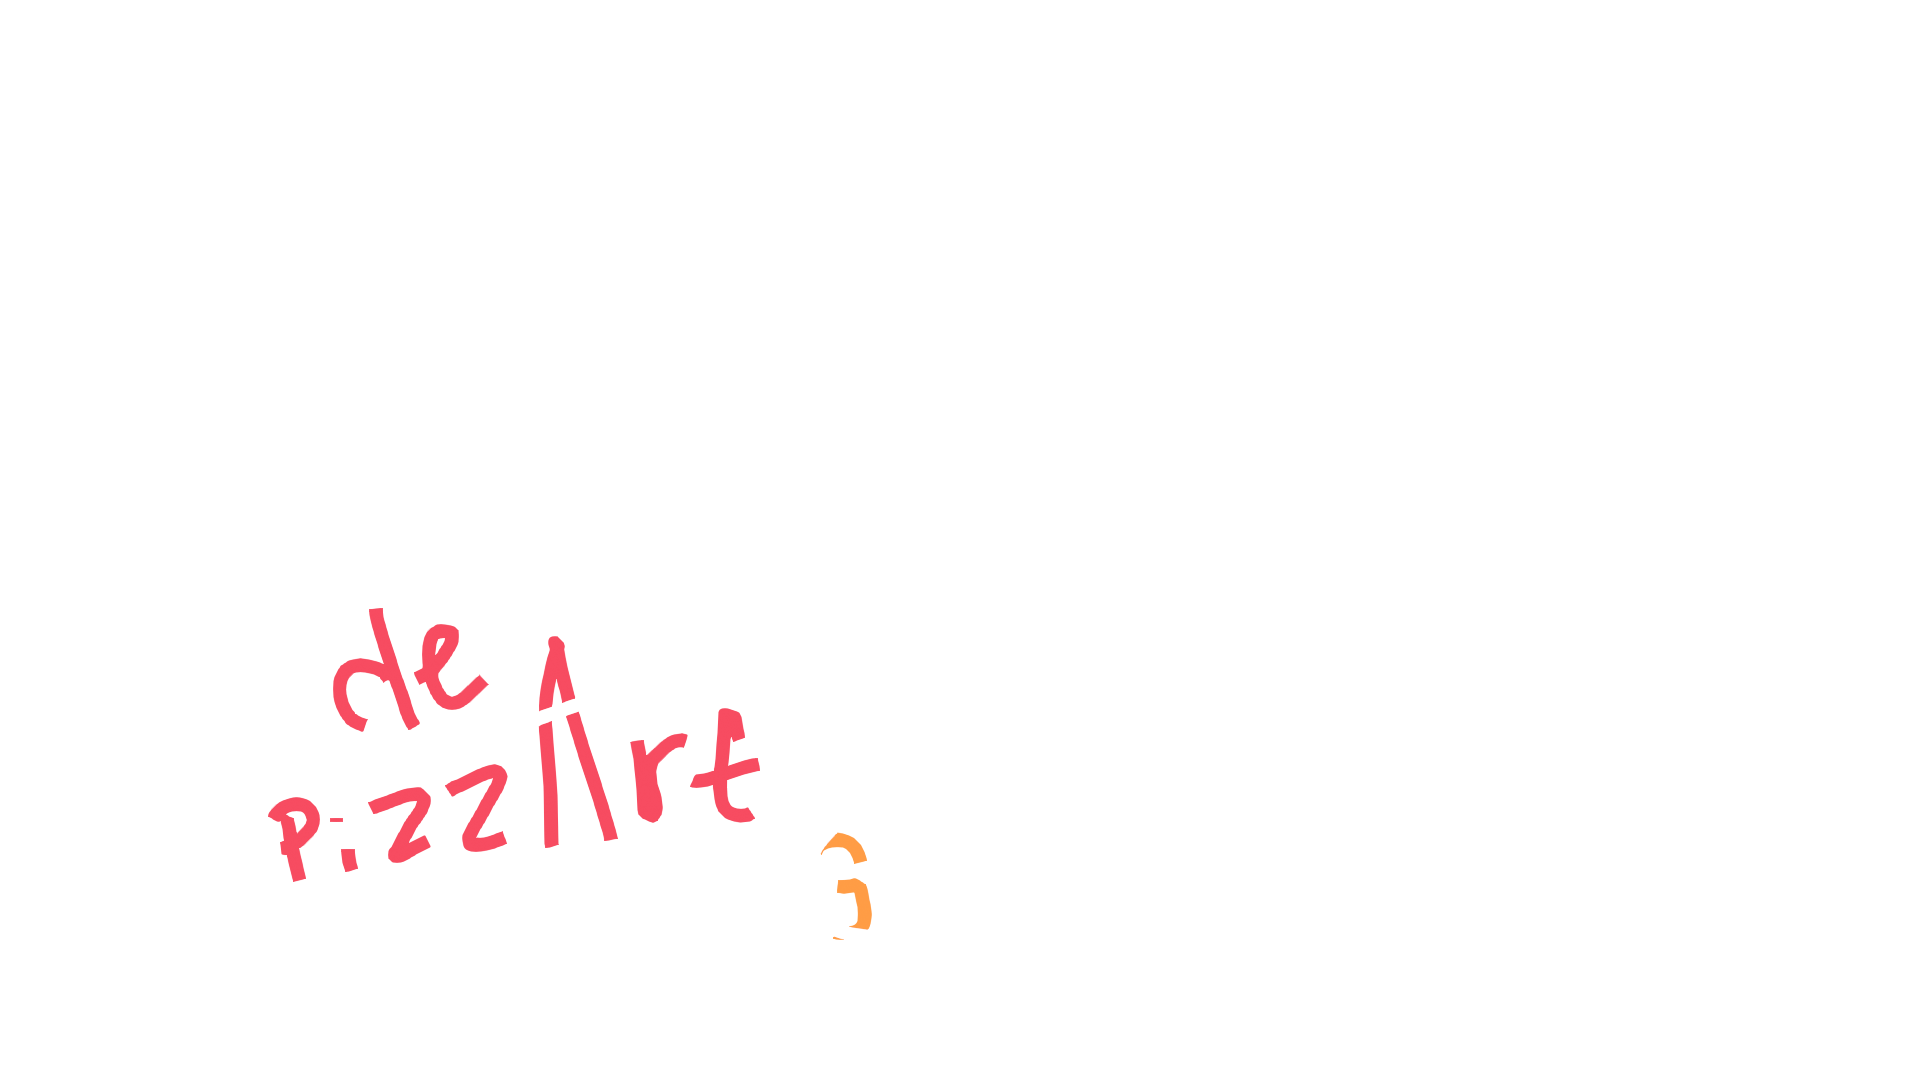 de
PizzArt
3